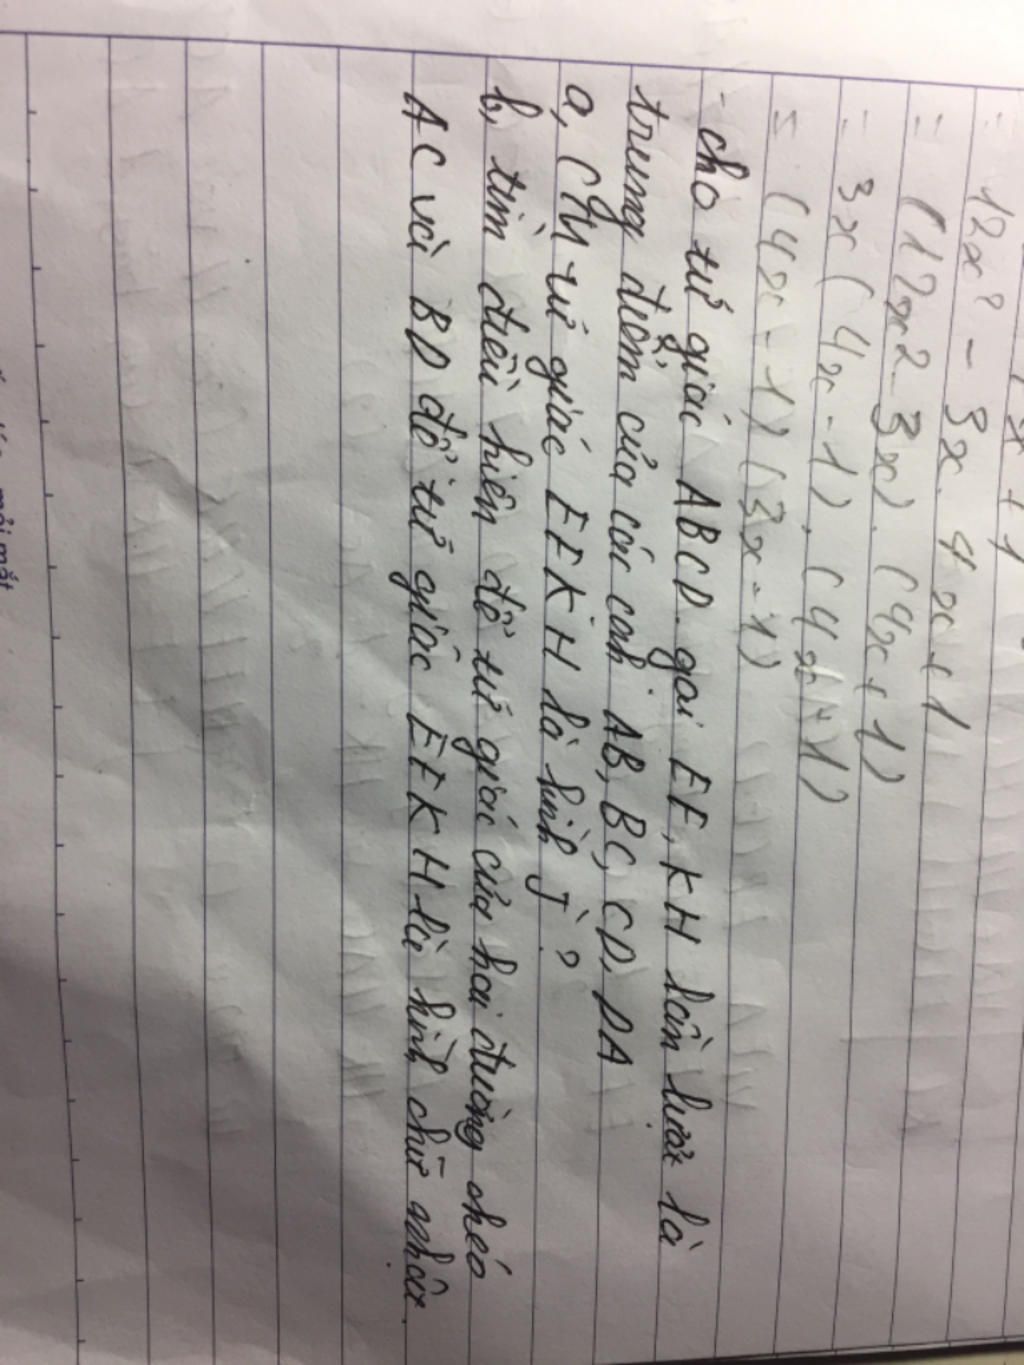 = 12x² - 3x. 4x + 1
= (12x2 - 3x). (4x + 1)
= 3x (4x - 1). (4x + 1)
= (4x - 1) (3x - 1)
- cho tứ giác ABCD. gọi EF, KH lần lượt là
trung điểm của các cạnh AB, BC, CD, DA
a, CM tứ giác EFKH là hình j ?
b, tìm điều kiện để tứ giác của hai đường chéo
AC với BD để tứ giác EFKH là hình chữ nhật.